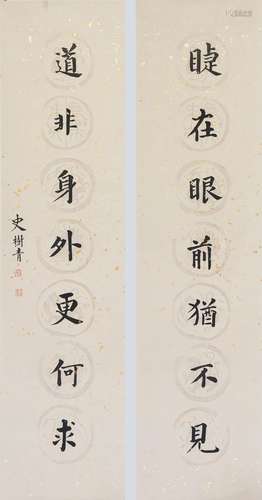 睫在眼前猶不見
道非身外更何求
史樹青